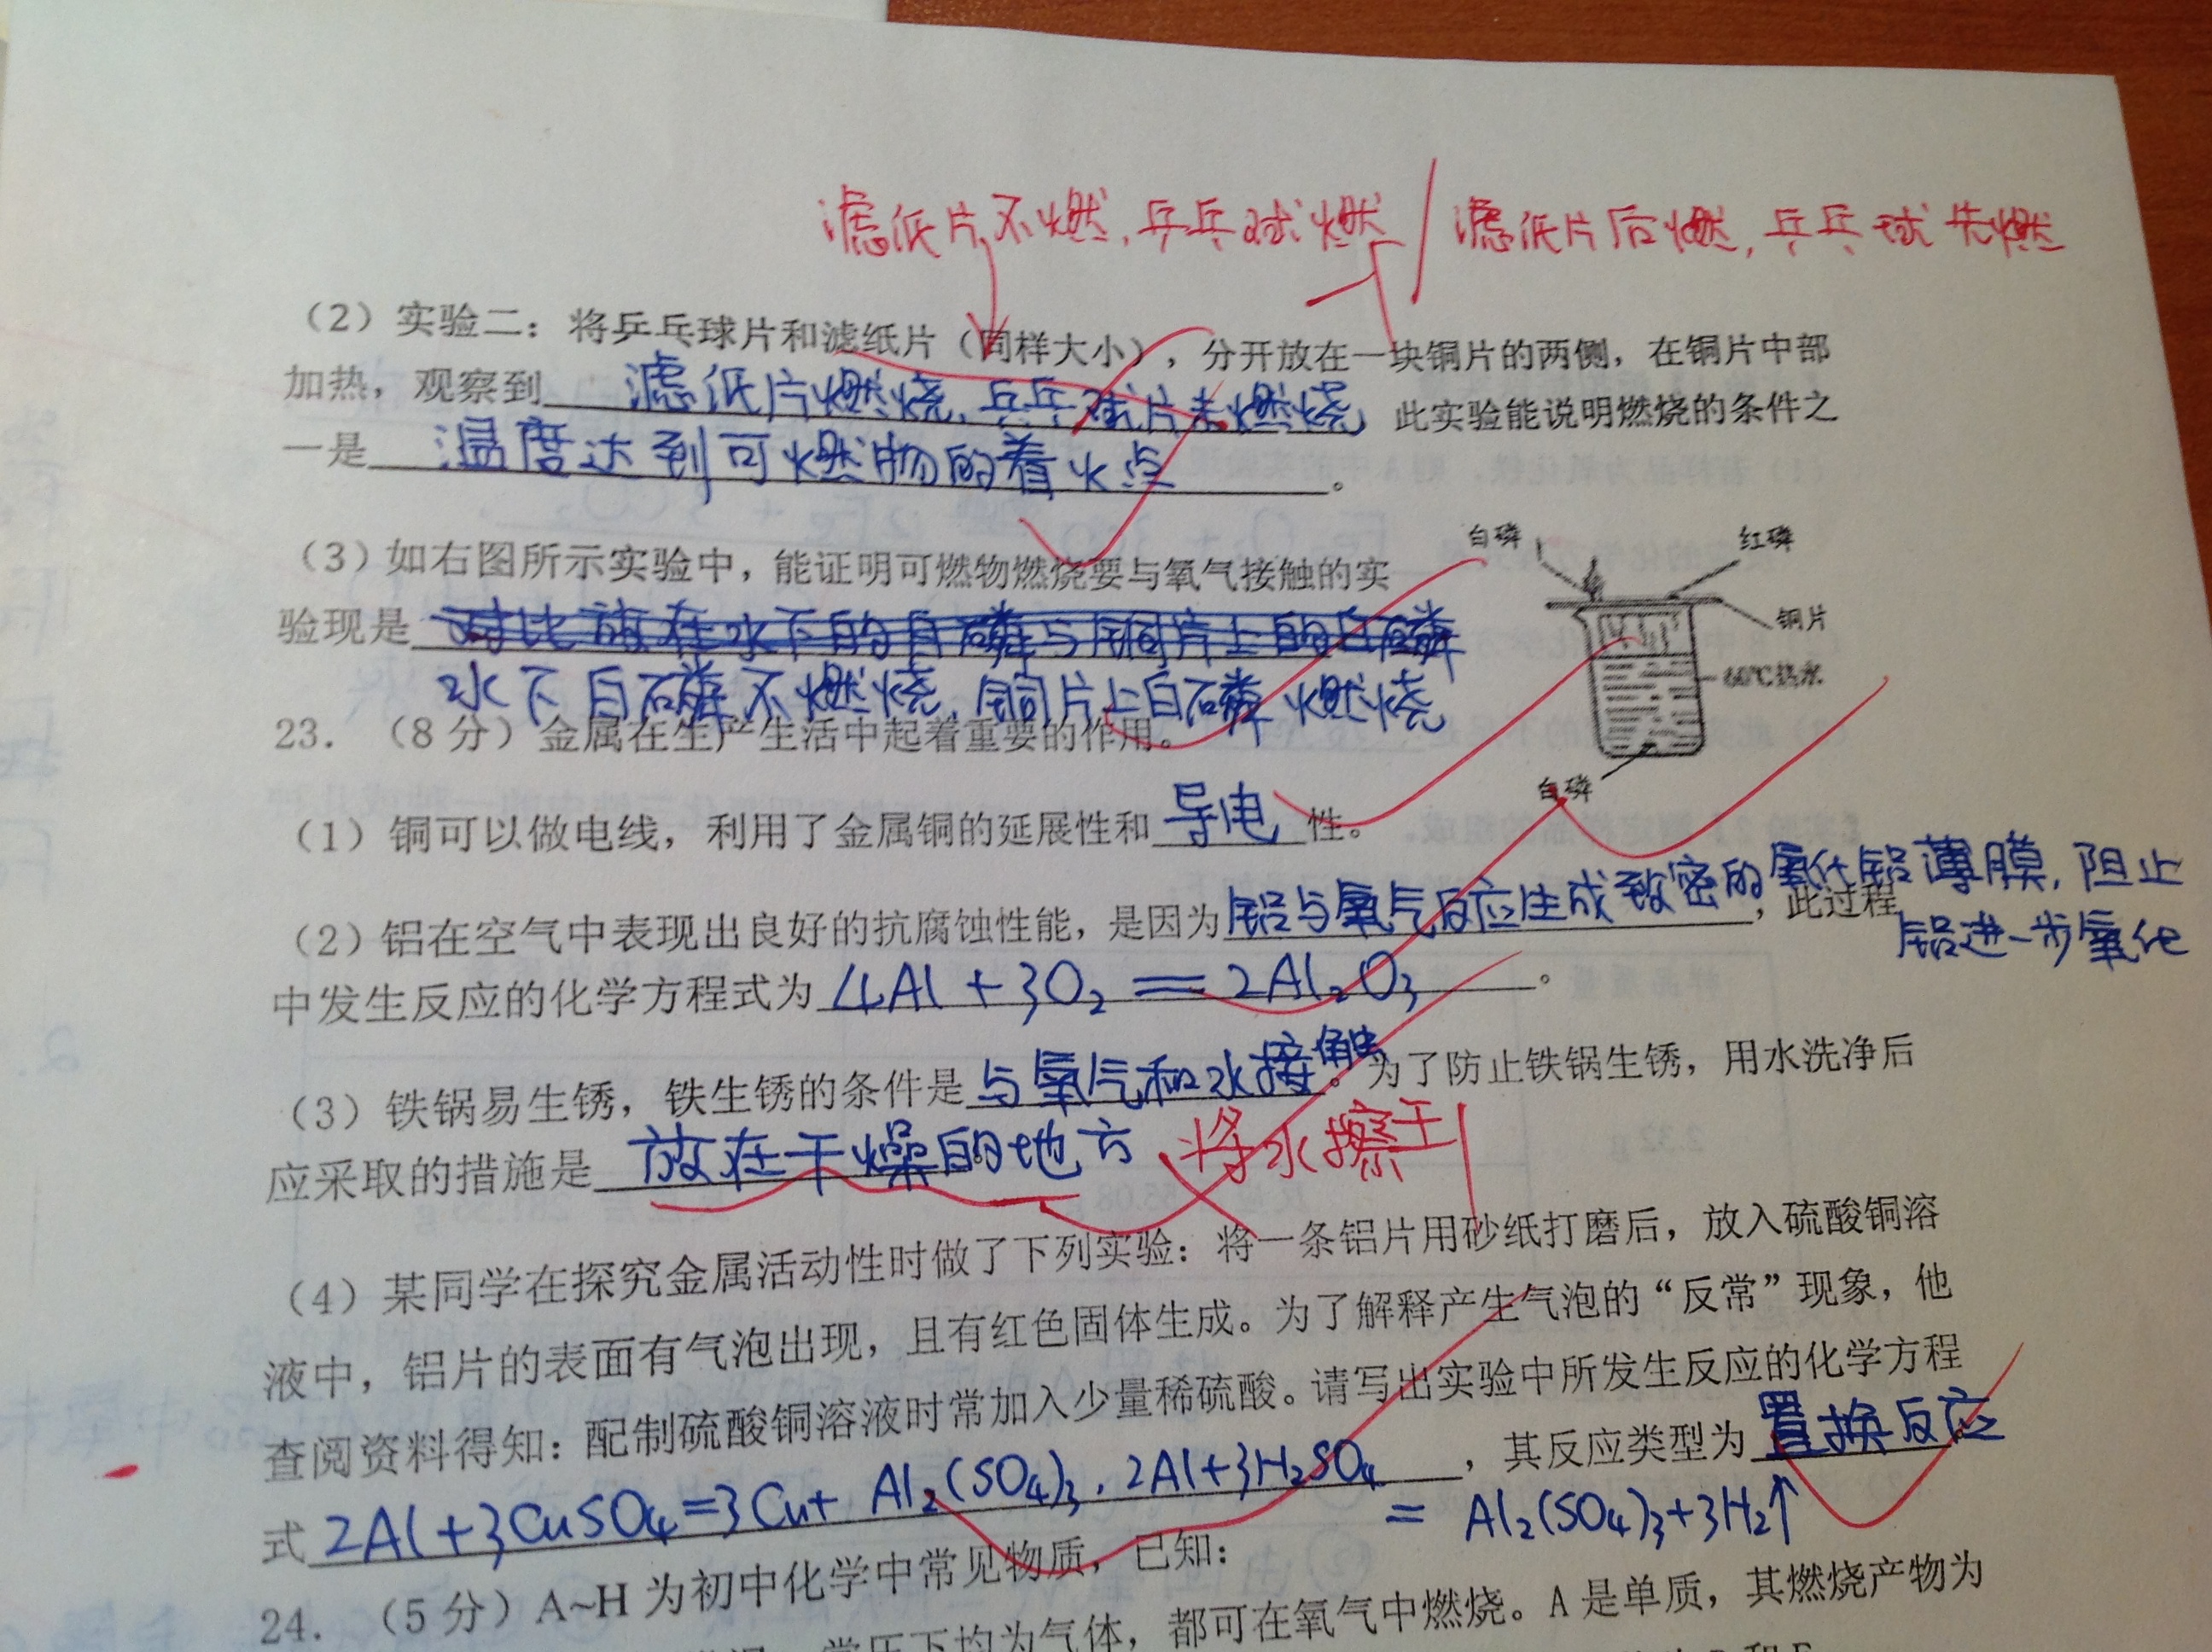 滤纸片不燃,乒乓球燃 / 滤纸片后燃,乒乓球先燃
(2)实验二:将乒乓球片和滤纸片(同样大小),分开放在一块铜片的两侧,在铜片中部
加热,观察到 滤纸片燃烧,乒乓球片未燃烧 此实验能说明燃烧的条件之
一是 温度达到可燃物的着火点 。
(3)如右图所示实验中,能证明可燃物燃烧要与氧气接触的实
验现是 对比放在水下的白磷与铜片上的白磷
水下白磷不燃烧,铜片上白磷燃烧
白磷
红磷
铜片
60℃热水
白磷
23. (8分)金属在生产生活中起着重要的作用。
(1)铜可以做电线,利用了金属铜的延展性和 导电 性。
(2)铝在空气中表现出良好的抗腐蚀性能,是因为 铝与氧气反应生成致密的氧化铝薄膜,阻止 ,此过程
铝进一步氧化
中发生反应的化学方程式为 4Al + 3O₂ = 2Al₂O₃ 。
(3)铁锅易生锈,铁生锈的条件是 与氧气和水接触 。为了防止铁锅生锈,用水洗净后
应采取的措施是 放在干燥的地方 将水擦干
(4)某同学在探究金属活动性时做了下列实验:将一条铝片用砂纸打磨后,放入硫酸铜溶
液中,铝片的表面有气泡出现,且有红色固体生成。为了解释产生气泡的“反常”现象,他
查阅资料得知:配制硫酸铜溶液时常加入少量稀硫酸。请写出实验中所发生反应的化学方程
式 2Al+3CuSO₄=3Cu+ Al₂(SO₄)₃. 2Al+3H₂SO₄ ,其反应类型为 置换反应
= Al₂(SO₄)₃+3H₂↑
24. (5分)A~H为初中化学中常见物质,已知:
常压下均为气体,都可在氧气中燃烧。A是单质,其燃烧产物为